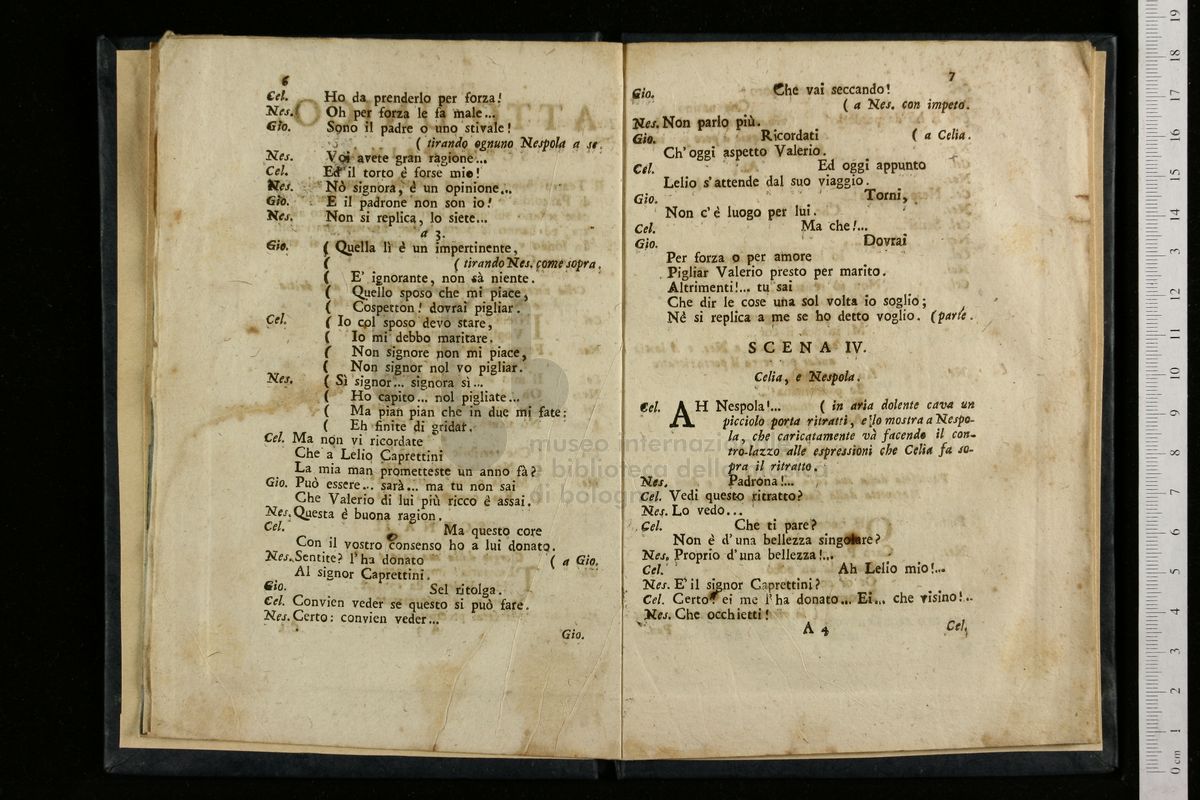 6
Cel. Ho da prenderlo per forza!
Nes. Oh per forza le fa male...
Gio. Sono il padre o uno stivale!
( tirando ognuno Nespola a se.
Nes. Voi avete gran ragione...
Cel. Ed il torto è forse mio!
Nes. Nò signora, è un opinione...
Gio. E il padrone non son io!
Nes. Non si replica, lo siete...
a 3.
Gio. ( Quella lì è un impertinente,
( ( tirando Nes. come sopra.
( E' ignorante, non sà niente.
( Quello sposo che mi piace,
( Cospetton! dovrai pigliar.
Cel. ( Io col sposo devo stare,
( Io mi debbo maritare.
( Non signore non mi piace,
( Non signor nol vo pigliar.
Nes. ( Sì signor... signora sì...
( Ho capito... nol pigliate...
( Ma pian pian che in due mi fate:
( Eh finite di gridar.
Cel. Ma non vi ricordate
Che a Lelio Caprettini
La mia man prometteste un anno fà?
Gio. Può essere... sarà... ma tu non sai
Che Valerio di lui più ricco è assai.
Nes. Questa è buona ragion.
Cel. Ma questo core
Con il vostro consenso ho a lui donato.
Nes. Sentite? l'ha donato ( a Gio.
Al signor Caprettini.
Gio. Sel ritolga.
Cel. Convien veder se questo si può fare.
Nes. Certo: convien veder...
Gio.
7
Gio. Che vai seccando!
( a Nes. con impeto.
Nes. Non parlo più.
Gio. Ricordati ( a Celia.
Ch'oggi aspetto Valerio.
Cel. Ed oggi appunto
Lelio s'attende dal suo viaggio.
Gio. Torni,
Non c'è luogo per lui.
Cel. Ma che!...
Gio. Dovrai
Per forza o per amore
Pigliar Valerio presto per marito.
Altrimenti!... tu sai
Che dir le cose una sol volta io soglio;
Nè si replica a me se ho detto voglio. (parte.
SCENA IV.
Celia, e Nespola.
Cel. AH Nespola!... ( in aria dolente cava un
picciolo porta ritratti, e lo mostra a Nespo-
la, che caricatamente và facendo il con-
tro-lazzo alle espressioni che Celia fa so-
pra il ritratto.
Nes. Padrona!...
Cel. Vedi questo ritratto?
Nes. Lo vedo...
Cel. Che ti pare?
Non è d'una bellezza singolare?
Nes. Proprio d'una bellezza!...
Cel. Ah Lelio mio!...
Nes. E' il signor Caprettini?
Cel. Certo! ei me l'ha donato... Ei... che visino!..
Nes. Che occhietti!
A 4 Cel.
museo internazionale
e biblioteca della musica
di bologna